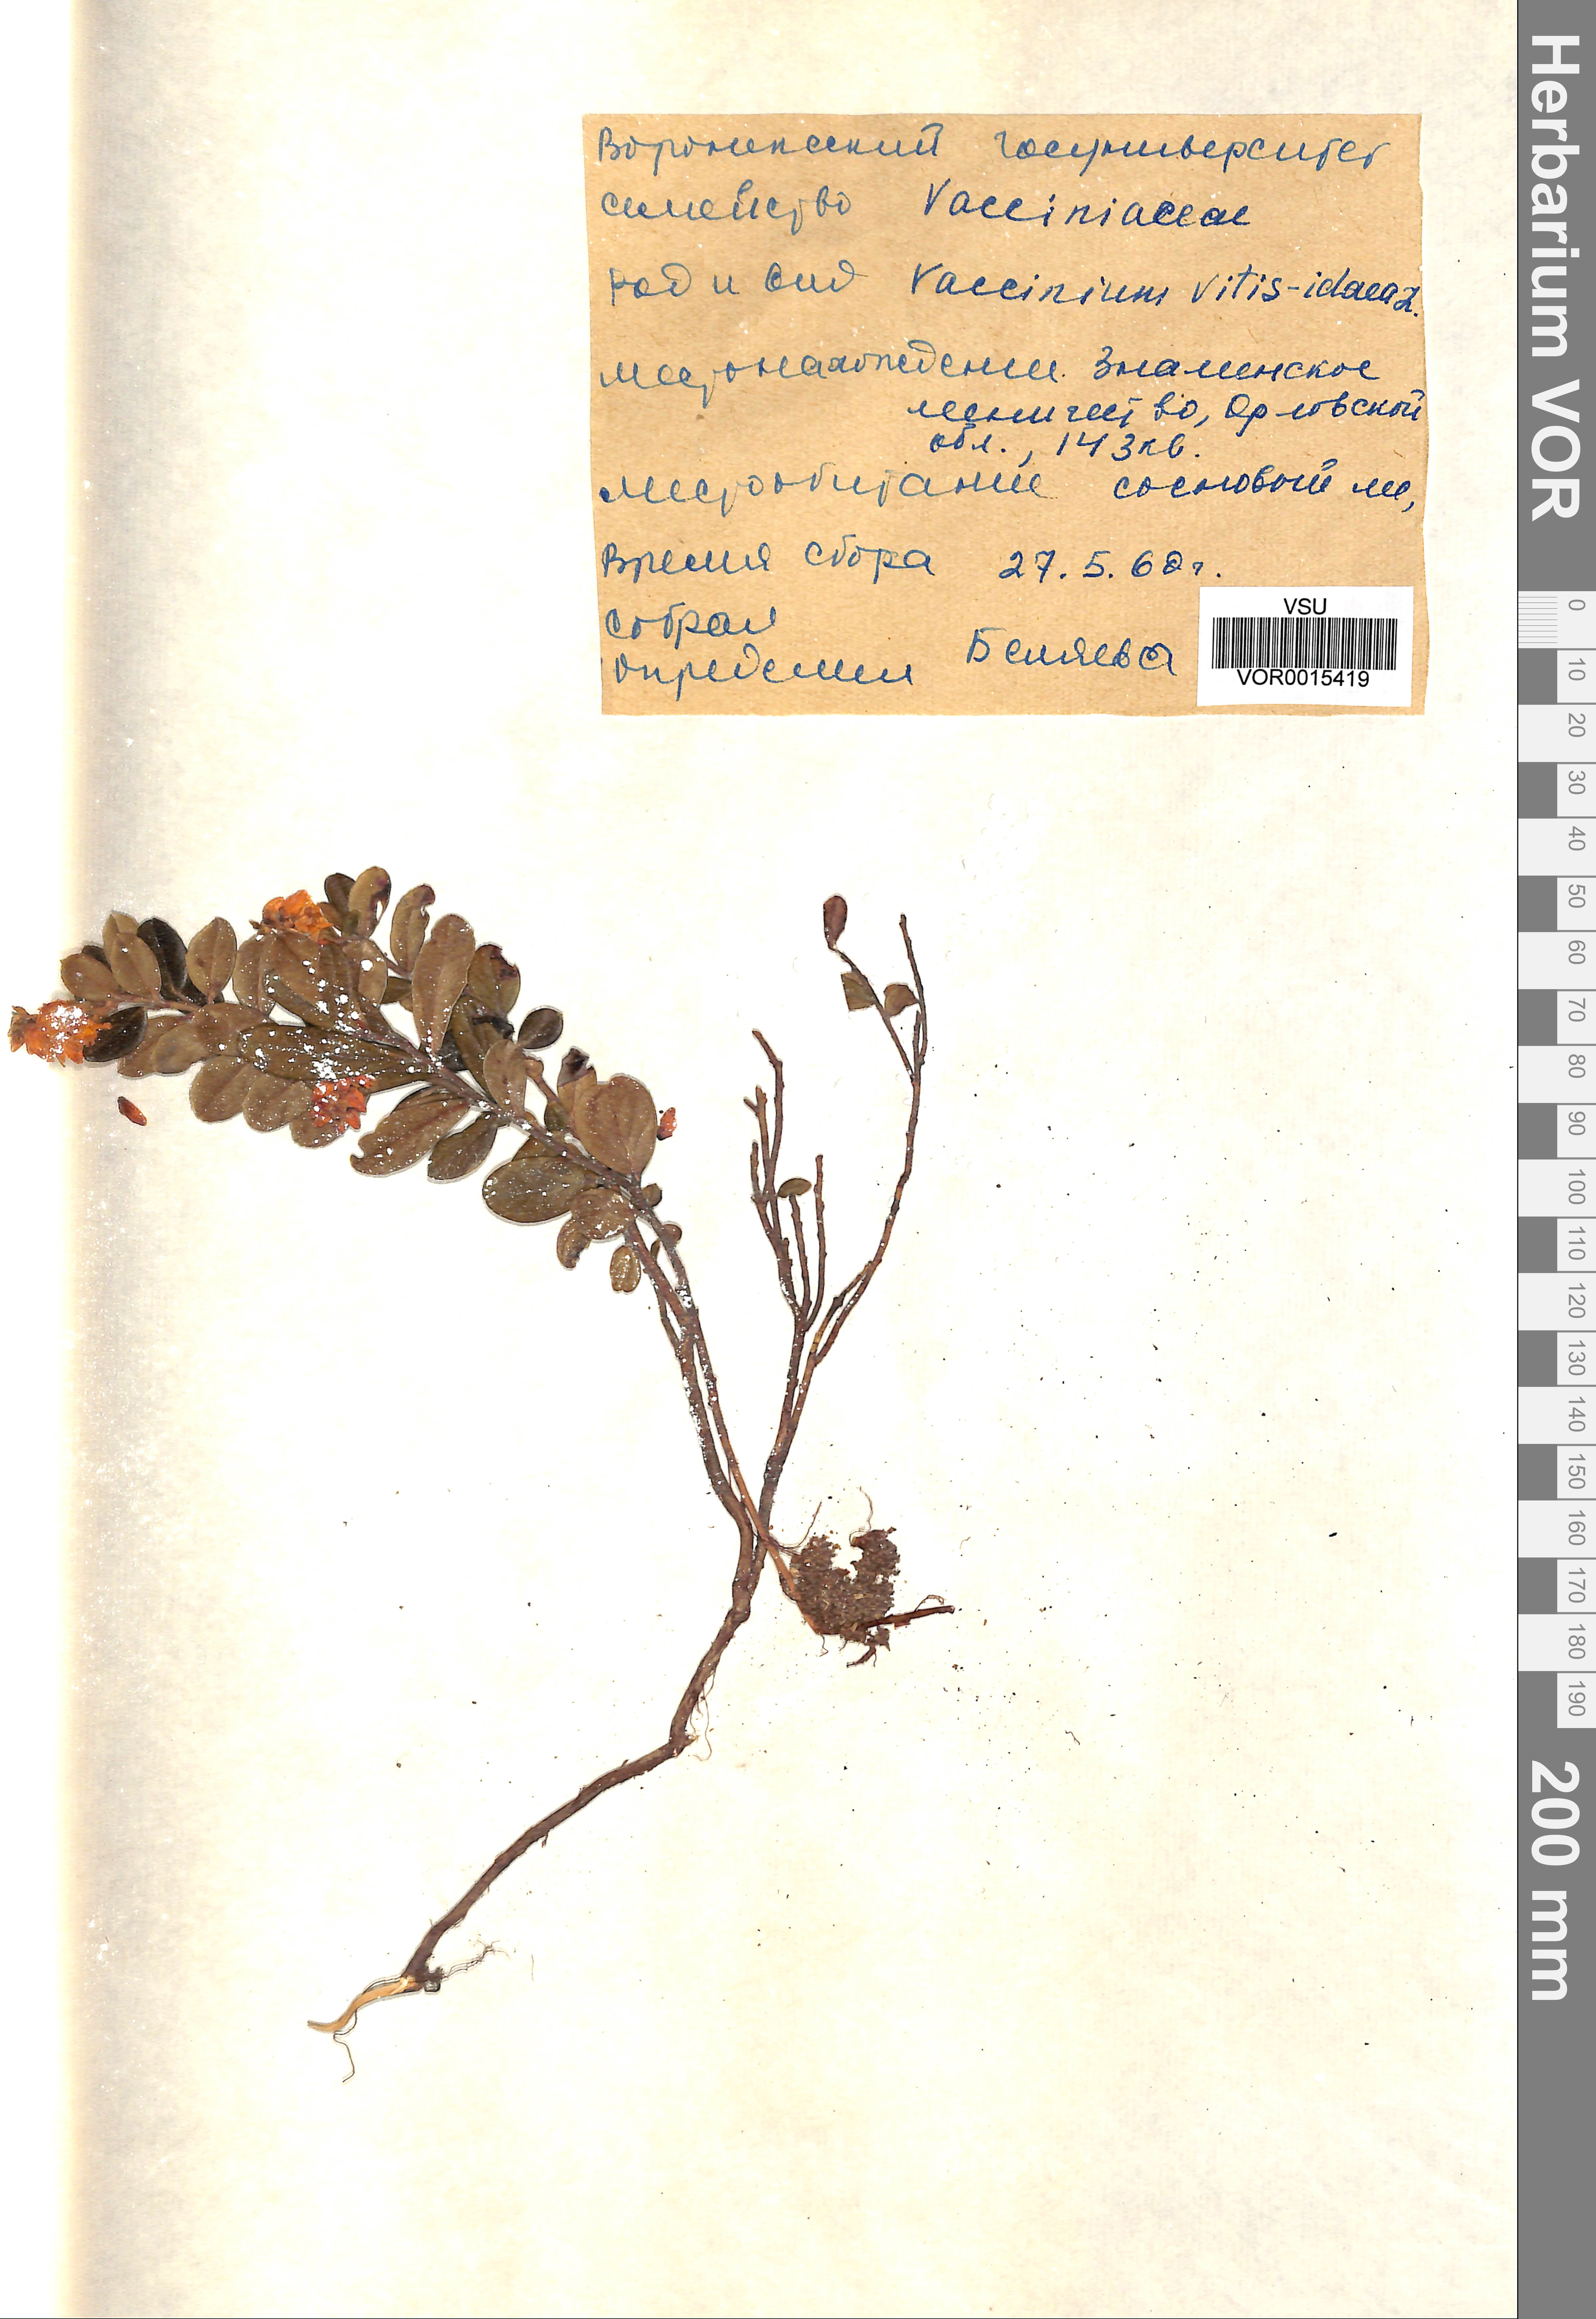 Воронежский госуниверситет
семейство Vacciniaceae
род и вид Vaccinium vitis-idaea L.
местонахождение Знаменское
лесничество, Орловской
обл., 143 кв.
Местообитание сосновый лес,
Время сбора 27.5.60г.
собрал
определил Беляева
VSU
VOR0015419
Herbarium VOR
0
10
20
30
40
50
60
70
80
90
100
110
120
130
140
150
160
170
180
190
200 mm